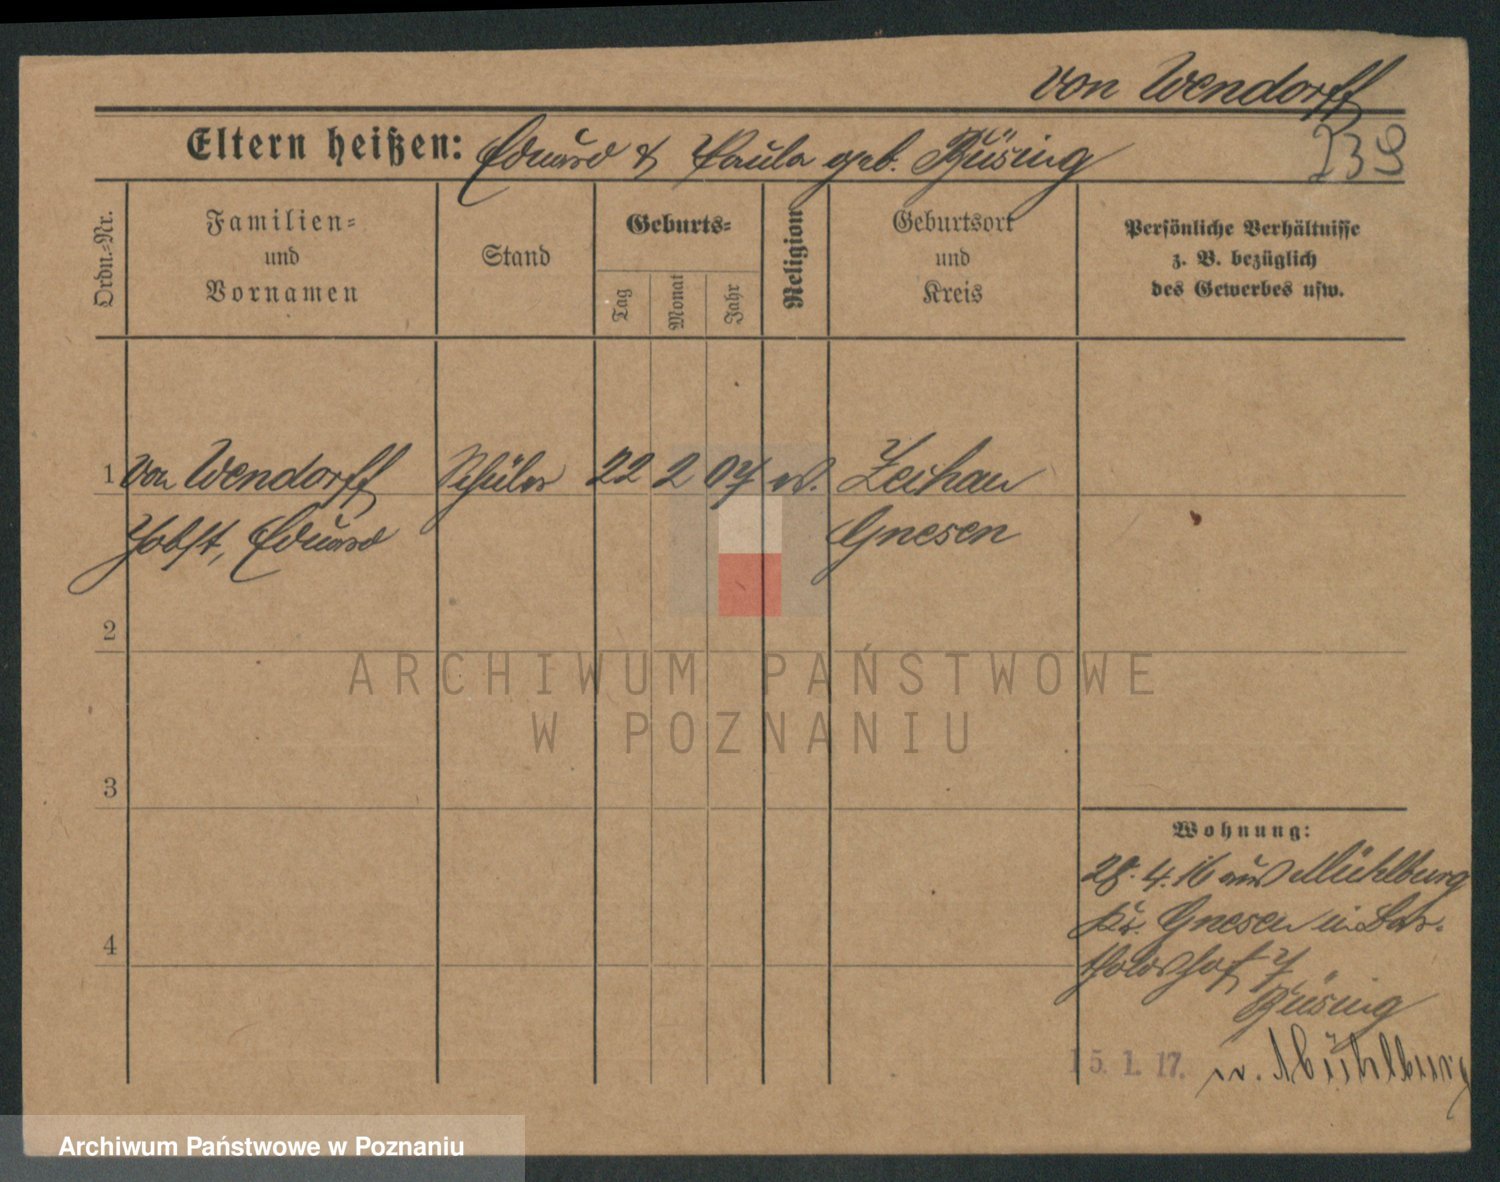 von Wendorff
Eltern heißen: Eduard & Paula geb. Büsing
239
Ordn.-Nr.
Familien-
und
Vornamen
Stand
Geburts-
Tag
Monat
Jahr
Religion
Geburtsort
und
Kreis
Persönliche Verhältnisse
z. B. bezüglich
des Gewerbes usw.
1 von Wendorff Schüler 22 2 07 ev. Zechau
Jobst, Eduard Gnesen
2
ARCHIWUM PAŃSTWOWE
W POZNANIU
3
Wohnung:
28.4.16 aus Mühlburg
Kr. Gnesen in Bar-
tholdshof 7
4
Büsing
15.1.17. n. Mühlburg
Archiwum Państwowe w Poznaniu